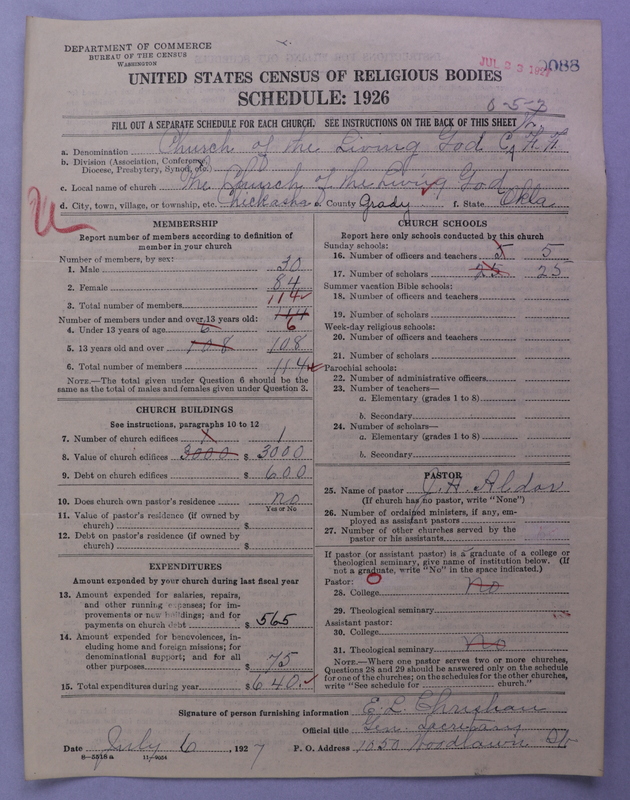 DEPARTMENT OF COMMERCE
BUREAU OF THE CENSUS
WASHINGTON
JUL 23 1927
0088
UNITED STATES CENSUS OF RELIGIOUS BODIES
SCHEDULE: 1926
8-5-3
FILL OUT A SEPARATE SCHEDULE FOR EACH CHURCH. SEE INSTRUCTIONS ON THE BACK OF THIS SHEET
a. Denomination Church of the Living God
b. Division (Association, Conference,
Diocese, Presbytery, Synod, etc.
c. Local name of church The Church of the Living God
d. City, town, village, or township, etc. Chickasha e. County Grady f. State Okla
MEMBERSHIP
Report number of members according to definition of
member in your church
Number of members, by sex:
1. Male 30
2. Female 84
3. Total number of members 114
Number of members under and over 13 years old: 114
4. Under 13 years of age 6 6
5. 13 years old and over 108 108
6. Total number of members 114
NOTE.—The total given under Question 6 should be the
same as the total of males and females given under Question 3.
CHURCH BUILDINGS
See instructions, paragraphs 10 to 12
7. Number of church edifices 1 1
8. Value of church edifices 3000 $ 3000
9. Debt on church edifices $ 600
10. Does church own pastor's residence no
Yes or No
11. Value of pastor's residence (if owned by
church) $
12. Debt on pastor's residence (if owned by
church) $
EXPENDITURES
Amount expended by your church during last fiscal year
13. Amount expended for salaries, repairs,
and other running expenses; for im-
provements or new buildings; and for
payments on church debt $ 565
14. Amount expended for benevolences, in-
cluding home and foreign missions; for
denominational support; and for all
other purposes $ 75
15. Total expenditures during year $ 640.
CHURCH SCHOOLS
Report here only schools conducted by this church
Sunday schools:
16. Number of officers and teachers 5 5
17. Number of scholars 25 25
Summer vacation Bible schools:
18. Number of officers and teachers
19. Number of scholars
Week-day religious schools:
20. Number of officers and teachers
21. Number of scholars
Parochial schools:
22. Number of administrative officers
23. Number of teachers—
a. Elementary (grades 1 to 8)
b. Secondary
24. Number of scholars—
a. Elementary (grades 1 to 8)
b. Secondary
PASTOR
25. Name of pastor J. H. Aldar
(If church has no pastor, write "None")
26. Number of ordained ministers, if any, em-
ployed as assistant pastors
27. Number of other churches served by the
pastor or his assistants
If pastor (or assistant pastor) is a graduate of a college or
theological seminary, give name of institution below. (If
not a graduate, write "No" in the space indicated.)
Pastor:
28. College No
29. Theological seminary
Assistant pastor:
30. College
31. Theological seminary No
NOTE.—Where one pastor serves two or more churches,
Questions 28 and 29 should be answered only on the schedule
for one of the churches; on the schedules for the other churches,
write "See schedule for church."
Signature of person furnishing information E. L. Chrishan
Official title Gen. Secretary
Date July 6, 1927 P. O. Address 1050 Woodlawn
8—5518a 11—9054